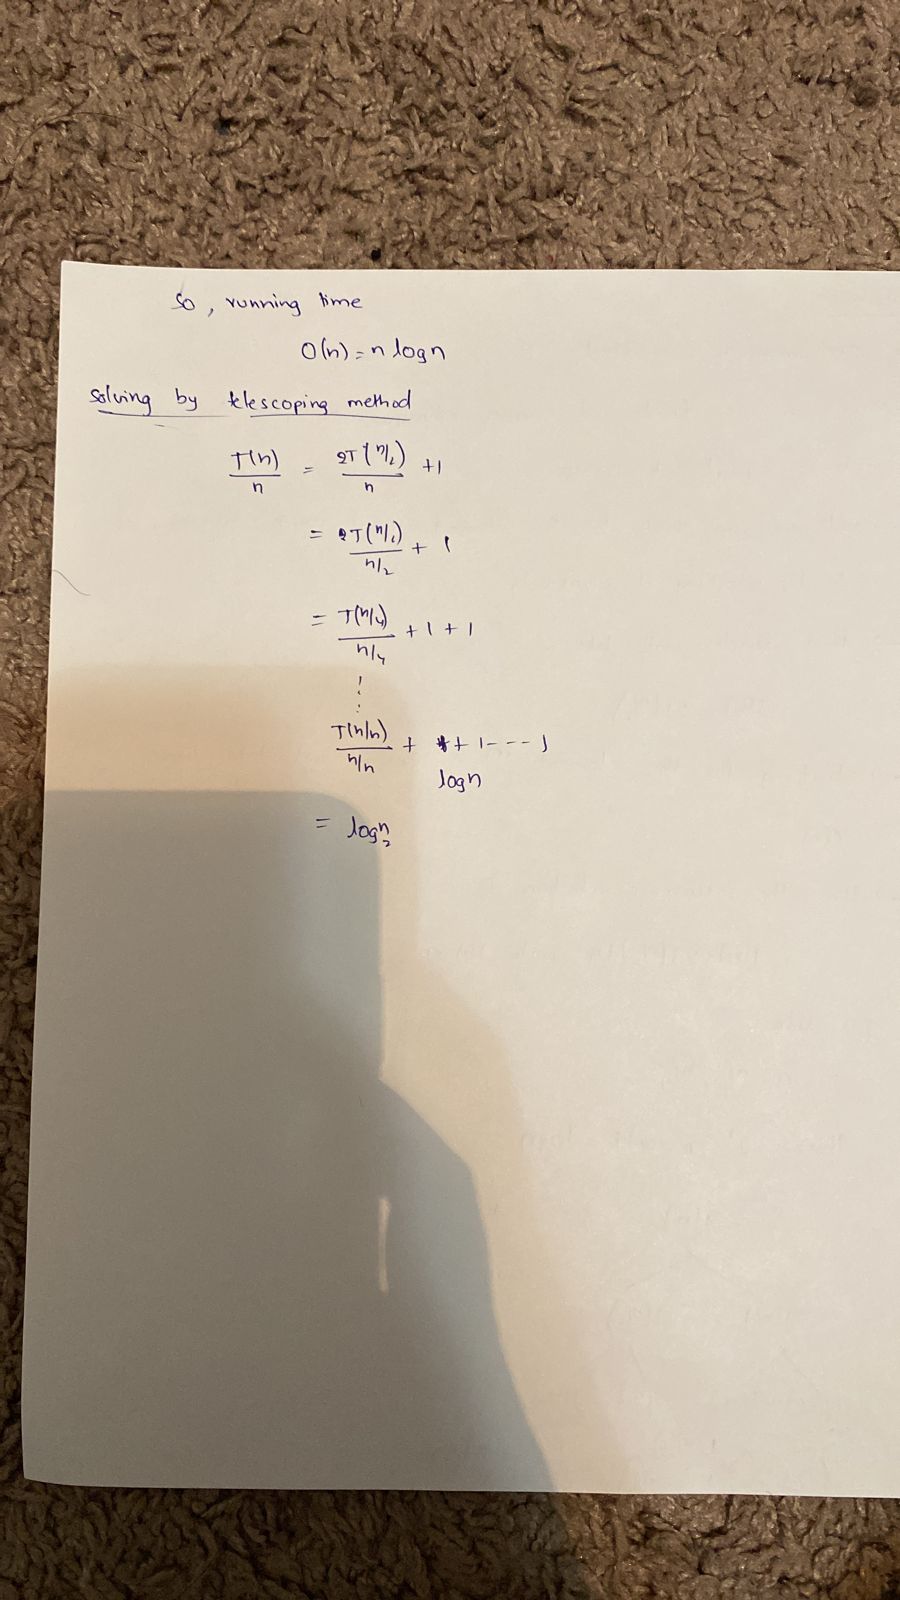 So, running time
O(n) = n log n
Solving by telescoping method
T(n)/n = 2T(n/2)/n + 1
= 2T(n/2)/n/2 + 1
= T(n/4)/n/4 + 1 + 1
⋮
T(n/n)/n/n + + 1 - - - 1
log n
= log n 2